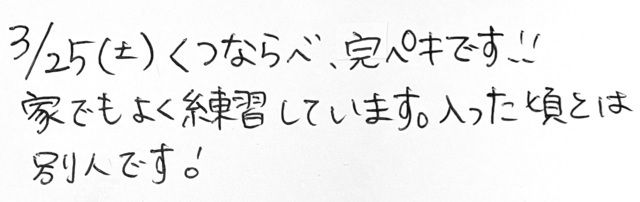 3/25(土)くつならべ、完ペキです!!
家でもよく練習しています。入った頃とは
別人です!